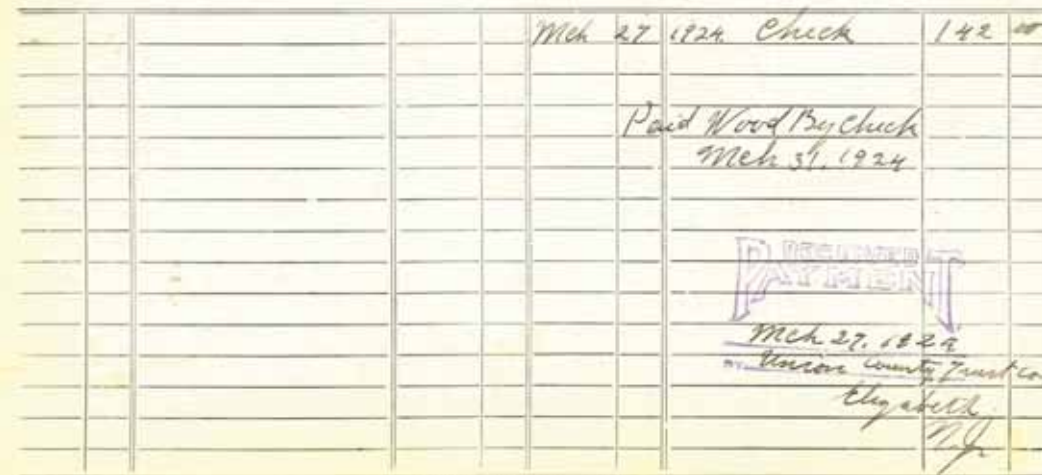 Mch 27 1924 Check 142 00
Paid Wood By Check
Mch 31, 1924
RECEIVED
PAYMENT
Mch 27, 1924
BY Union County Trust Co
Elizabeth
N.J.